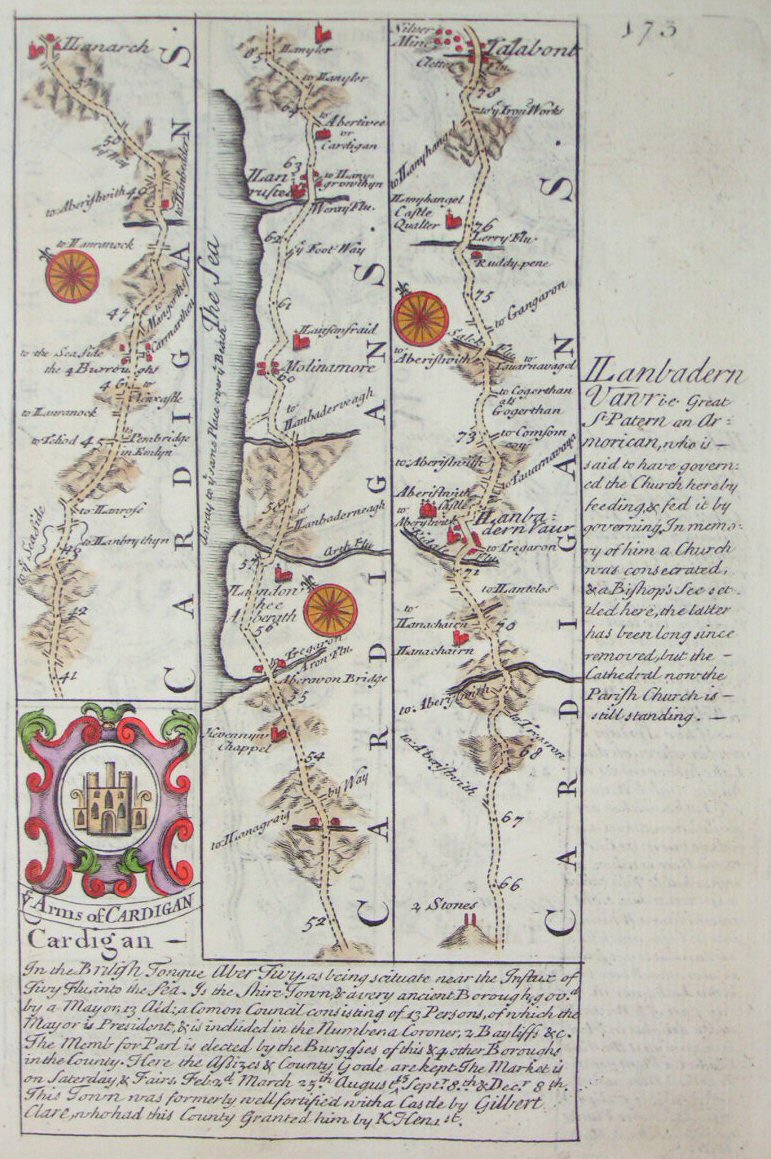 173
Lanarch
50
by Way
to Aberistwith 49
to Llanbeder
to Llanranock
47
to Llangorthey
Carmarthen
to the Sea Side
the 4 Burroughs
46
to
Newcastle
to Llanranock
to Tchod 45
to Penbridge
in Emlyn
to Llanrose
to ye Sea Side
43
to Llanbrythyn
42
41
CARDIGANS.
ye Arms of CARDIGAN
65
Llanyler
to Llanyler
64
to
Abertivee
or
Cardigan
63
Llan-
rusted
to Llany-
growthyn
Weray Flu.
62
ye Foot Way
61
Laitsonfraid
Molinamore
60
to
Llanbaderveagh
58
to
Llanbaderneagh
57
Arth Flu
Llandon
hee
Aberath
56
to Tregaron
Aron Flu.
Aberavon Bridge
55
Kevennyn
Chappel
54
by Way
to Llanagraig
52
The Sea
A way to ye same Place over ye Beach
CARDIGANS.
Silver
Mine
Talabont
Cletter
Flu.
78
to ye Iron Works
to Llanyhangel
Llanyhangel
Castle
Qualter
76
Lerry Flu.
Ruddy-pene
75
to Gangaron
Salek Flu
to
Aberistwith
to
Lauarnavagol
to Cogerthan
als
Gogerthan
73
to Comsom
to Aberistwith
to Lauarnavago
Aberistwith
Castle
to
Aberystwith
Llanba-
dern Vaur
Ridol
Flu
to Tregaron
71
to Llantelos
to
Llanachairn
70
Llanachairn
to Aberistwith
to Tregaron
68
to Aberistwith
67
66
2 Stones
CARDIGANS.
Llanbadern
Vawr i.e. Great
St. Patern an Ar=
morican, who is —
said to have govern=
ed the Church hereby
feeding, & fed it by
governing. In memo-
ry of him a Church
was consecrated,
& a Bishop's See set-
tled here, the latter
has been long since
removed, but the —
Cathedral now the
Parish Church is —
still standing. —
Cardigan —
In the British Tongue Aber Tivy, as being scituate near the Influx of
Tivy Flu. into the Sea. Is the Shire Town, & a very ancient Borough, govd.
by a Mayor, 13 Ald; a Comon Council consisting of 13 Persons, of which the
Mayor is President, & is included in the Number, a Coroner, 2 Bayliffs &c.
The Membr for Parl is elected by the Burgesses of this & 4 other Boroughs
in the County. Here the Assizes & County Goale are kept. The Market is
on Saterday, & Fairs, Feb. 2d. March 25th August, Septr. 8th & Decr 8th.
This Town was formerly well fortified with a Castle by Gilbert
Clare, who had this County Granted him by K. Hen. 1st.